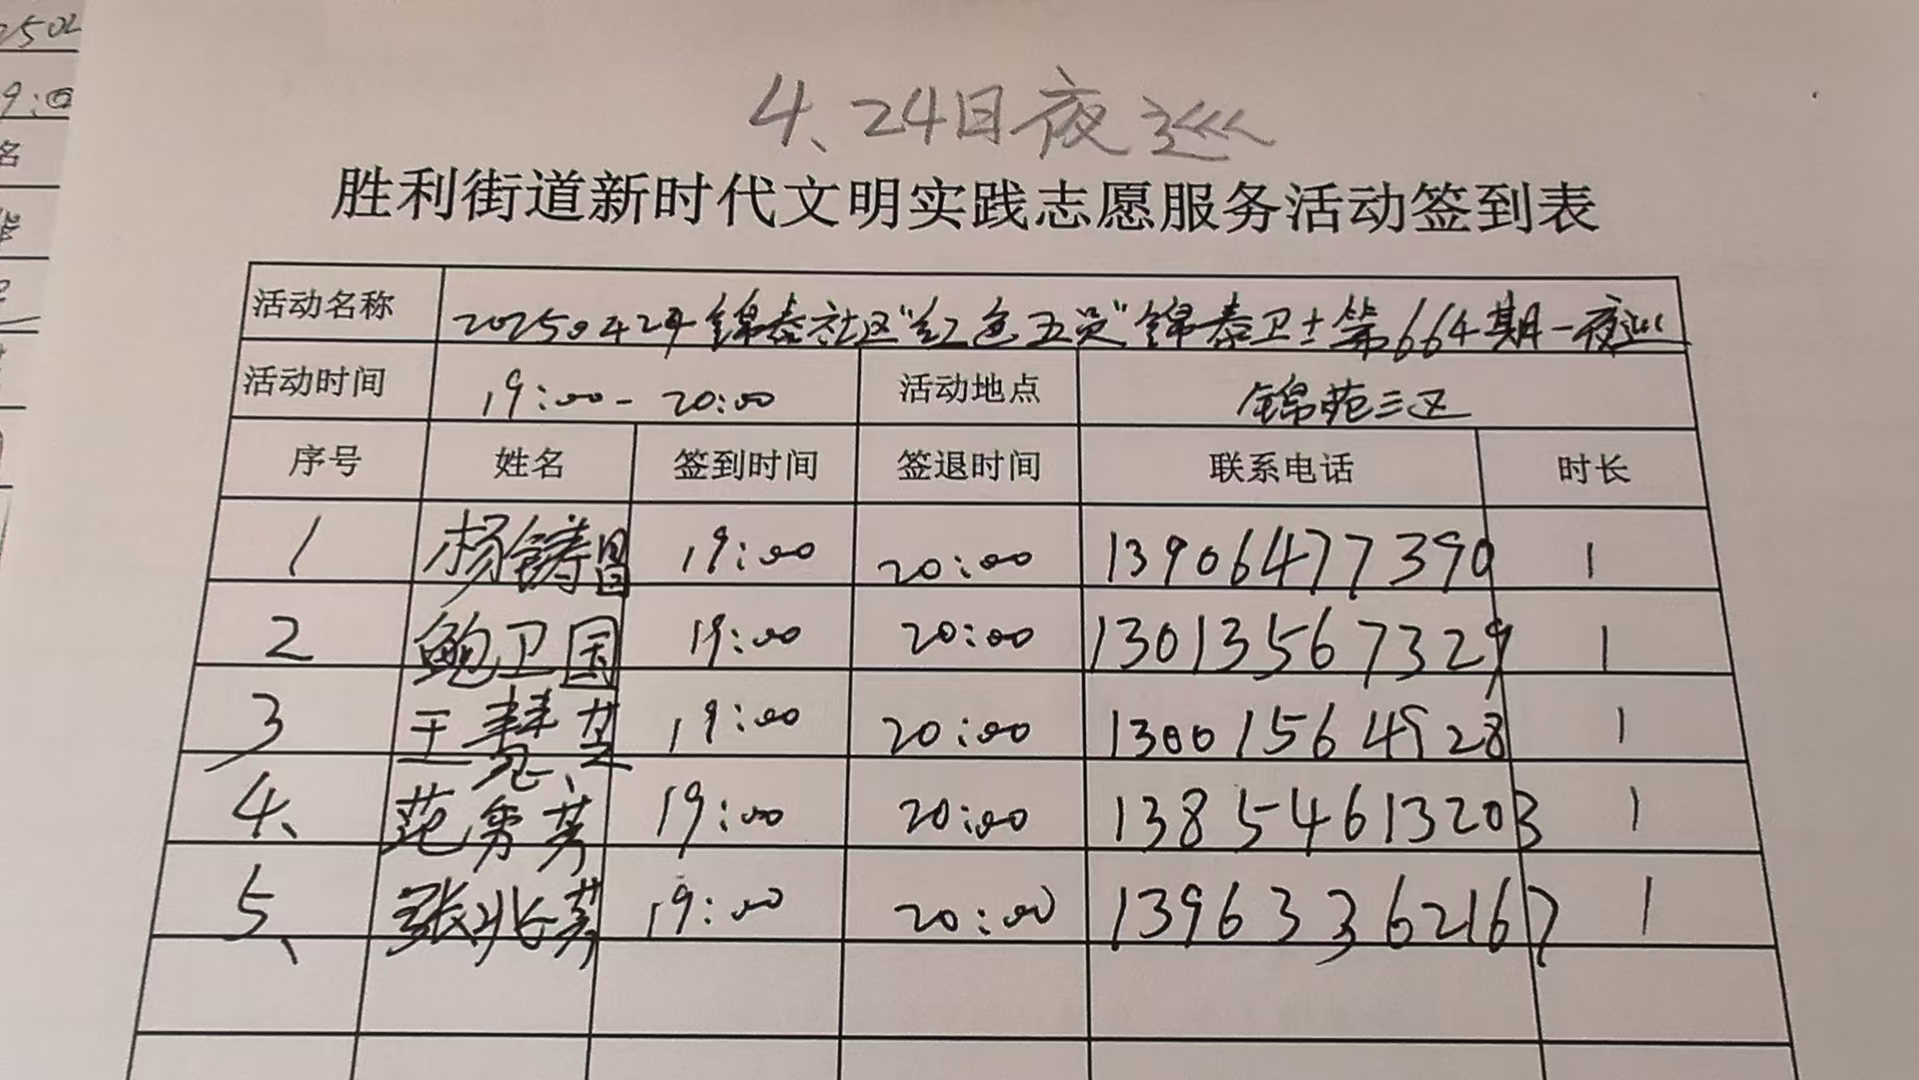 2502
9:00
名
4、24日夜巡
胜利街道新时代文明实践志愿服务活动签到表
活动名称 20250424锦泰社区"红色五员"锦泰卫士第664期一夜巡
活动时间 19:00-20:00 活动地点 锦苑三区
序号 姓名 签到时间 签退时间 联系电话 时长
1 杨铸昌 19:00 20:00 13906477390 1
2 鲍卫国 19:00 20:00 13013567329 1
3 王慧芝 19:00 20:00 13001564928 1
4、 范秀英 19:00 20:00 13854613203 1
5、 张兆英 19:00 20:00 13963362167 1